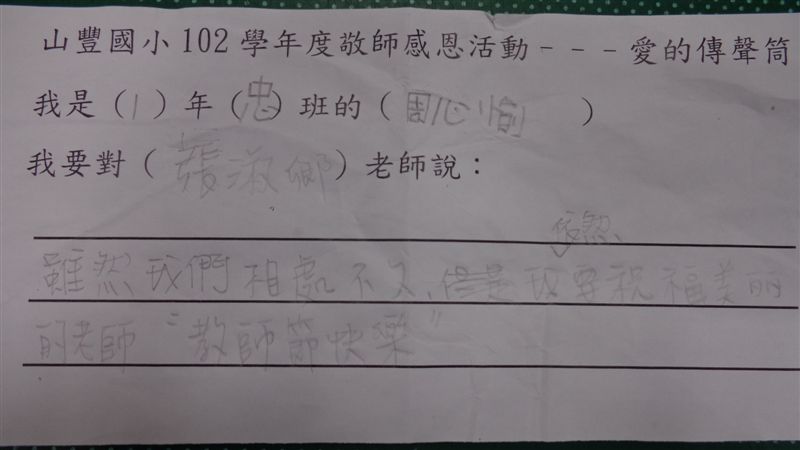 山豐國小102學年度敬師感恩活動---愛的傳聲筒
我是（1）年（忠）班的（周心怡）
我要對（張淑鄉）老師說：
依然
雖然我們相處不久、但是我要祝福美丽
的老師“教師節快樂”